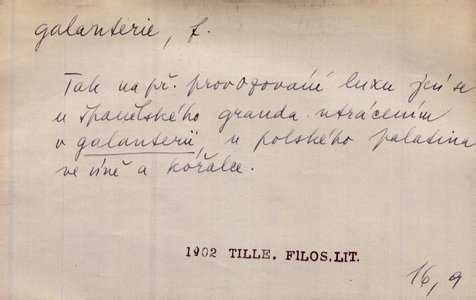 galanterie, f.
Tak např. provozování luxu jeví se
u španělského granda utrácením
v galanterii, u polského palatina
ve víně a kořalce.
1902 TILLE, FILOS.LIT.
16, 9